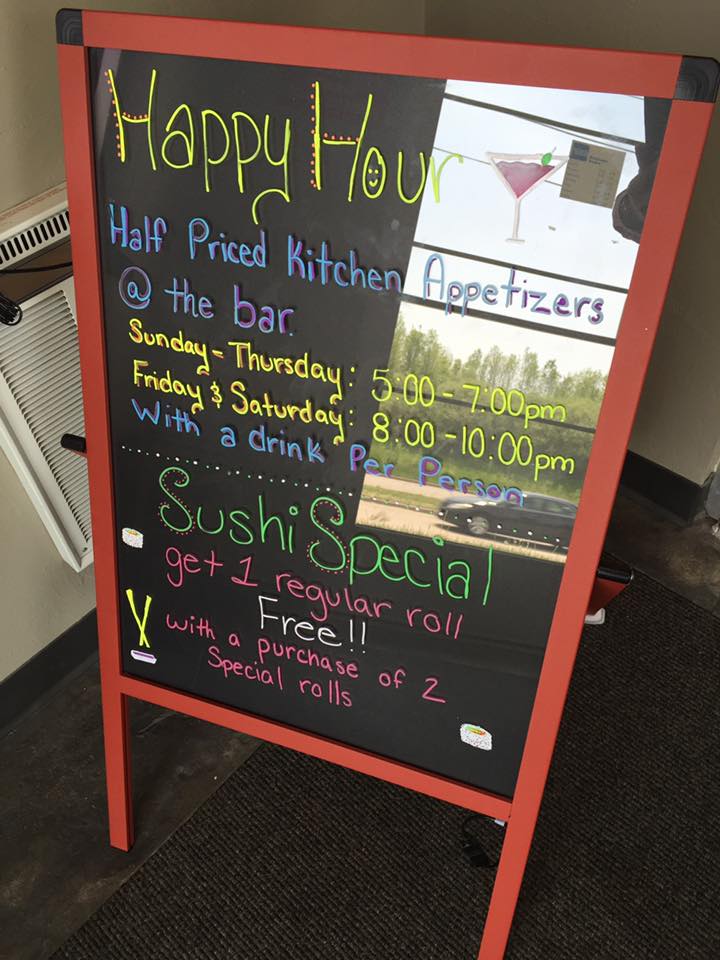 Happy Hour
Half Priced Kitchen Appetizers
@ the bar.
Sunday - Thursday: 5:00 - 7:00pm
Friday & Saturday: 8:00 - 10:00pm
With a drink Per Person
Sushi Special
get 1 regular roll
Free!!
with a purchase of 2
Special rolls